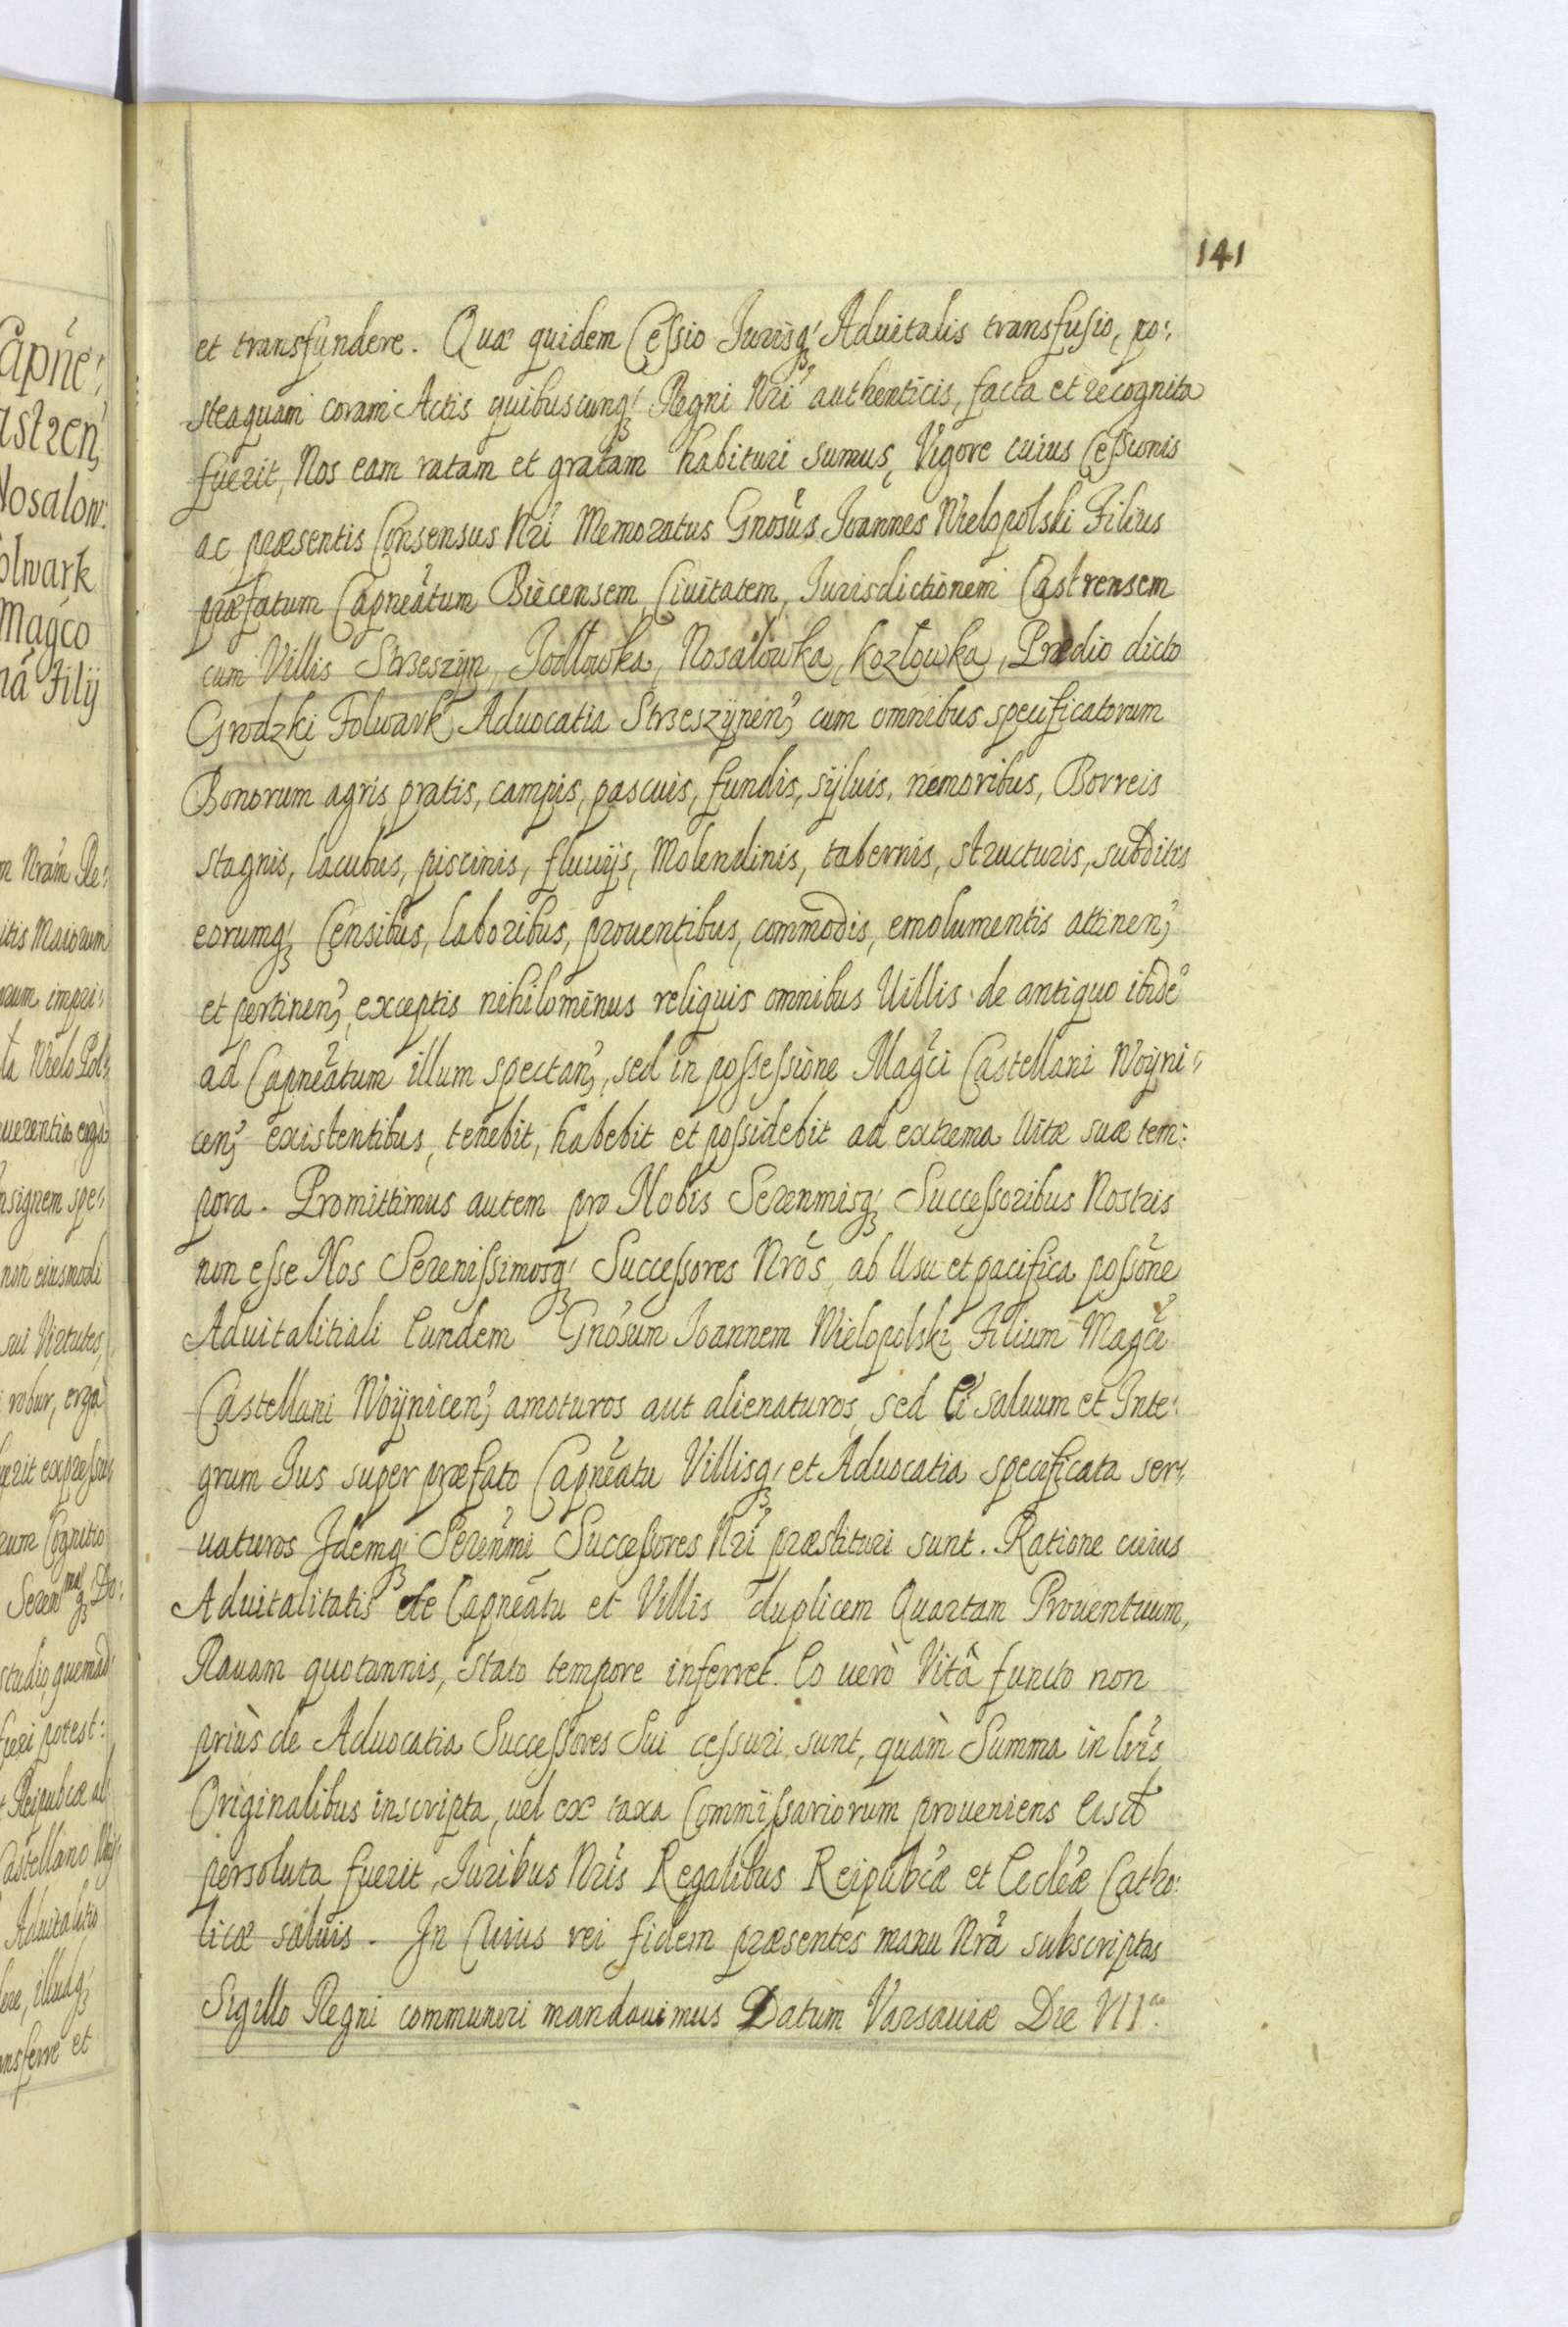 141
et transfundere. Quæ quidem Cessio Jurisq; Aduitalis transfusio, po:
steaquam coram Actis quibuscunq; Regni Nri authenticis, facta et recognita
fuerit, Nos eam ratam et gratam habituri sumus, Vigore cuius Cessionis
ac præsentis Consensus Nri Memoratus Gnosus Joannes Wielopolski Filius
præfatum Capneatum Biecensem, Ciuitatem, Jurisdictionem Castrensem
cum Villis Strzeszyn, Jodłowka, Nosalowka, Kozłowka, Prædio dicto
Grodzki Folwark Aduocatia Strzeszÿnen, cum omnibus specificatorum
Bonorum agris pratis, campis, pascuis, fundis, sÿluis, nemoribus, Borreis
stagnis, lacubus, piscinis, fluuijs, Molendinis, tabernis, structuris, subditis
eorumq; Censibus, laboribus, prouentibus, commodis, emolumentis attinen,
et pertinen, exceptis nihilominus reliquis omnibus Villis de antiquo ibide
ad Capneatum illum spectan, sed in possessione Magci Castellani Woÿni:
cen, existentibus, tenebit, habebit et possidebit ad extrema Vitæ suæ tem:
pora. Promittimus autem pro Nobis Serenmisq; Successoribus Nostris
non esse Nos Serenissimosq; Successores Nros ab Usu et pacifica possone
Aduitalitiali Eundem Gnosum Joannem Wielopolski Filium Magci
Castellani Woÿnicen, amoturos aut alienaturos, sed Ei saluum et Inte:
grum Jus super præfato Capneatu Villisq; et Aduocatia specificata ser:
uaturos Idemq; Serenmi Successores Nri præstituri sunt. Ratione cuius
Aduitalitatis de Capneatu et Villis duplicem Quartam Prouentuum,
Rauam quotannis, stato tempore inferret. Eo uerò Vitâ functo non
priùs de Aduocatia Successores Sui cessuri sunt, quàm Summa in lris
Originalibus inscripta, uel ex taxa Commissariorum proueniens Eisd
persoluta fuerit, Juribus Nris Regalibus Reipubcæ et Eccleæ Catho:
licæ saluis. In Cuius rei fidem præsentes manu Nra subscriptas
Sigillo Regni communiri mandauimus Datum Varsauiæ Die VII